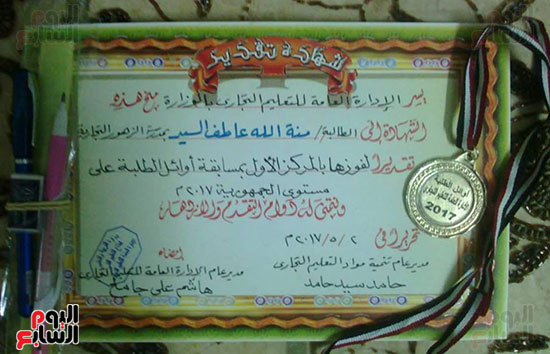 شهادة تقدير
يسر الإدارة العامة للتعليم التجارى بالوزارة منح هذه
الشهادة إلى الطالبة/ منة الله عاطف السيد بمدرسة الزهور التجارية
تقديرا لفوزها بالمركز الأول بمسابقة أوائل الطلبة على
مستوى الجمهورية ٢٠١٧م
ونتمنى لها دوام التقدم والازدهار
تحريرا فى ٢/٥/٢٠١٧م
مدير عام تنمية مواد التعليم التجارى
حامد سيد حامد
إمضاء
مدير عام الإدارة العامة للتعليم التجارى
هاشم على حامد
أوائل الطلبة
2017
اليوم السابع
اليوم السابع